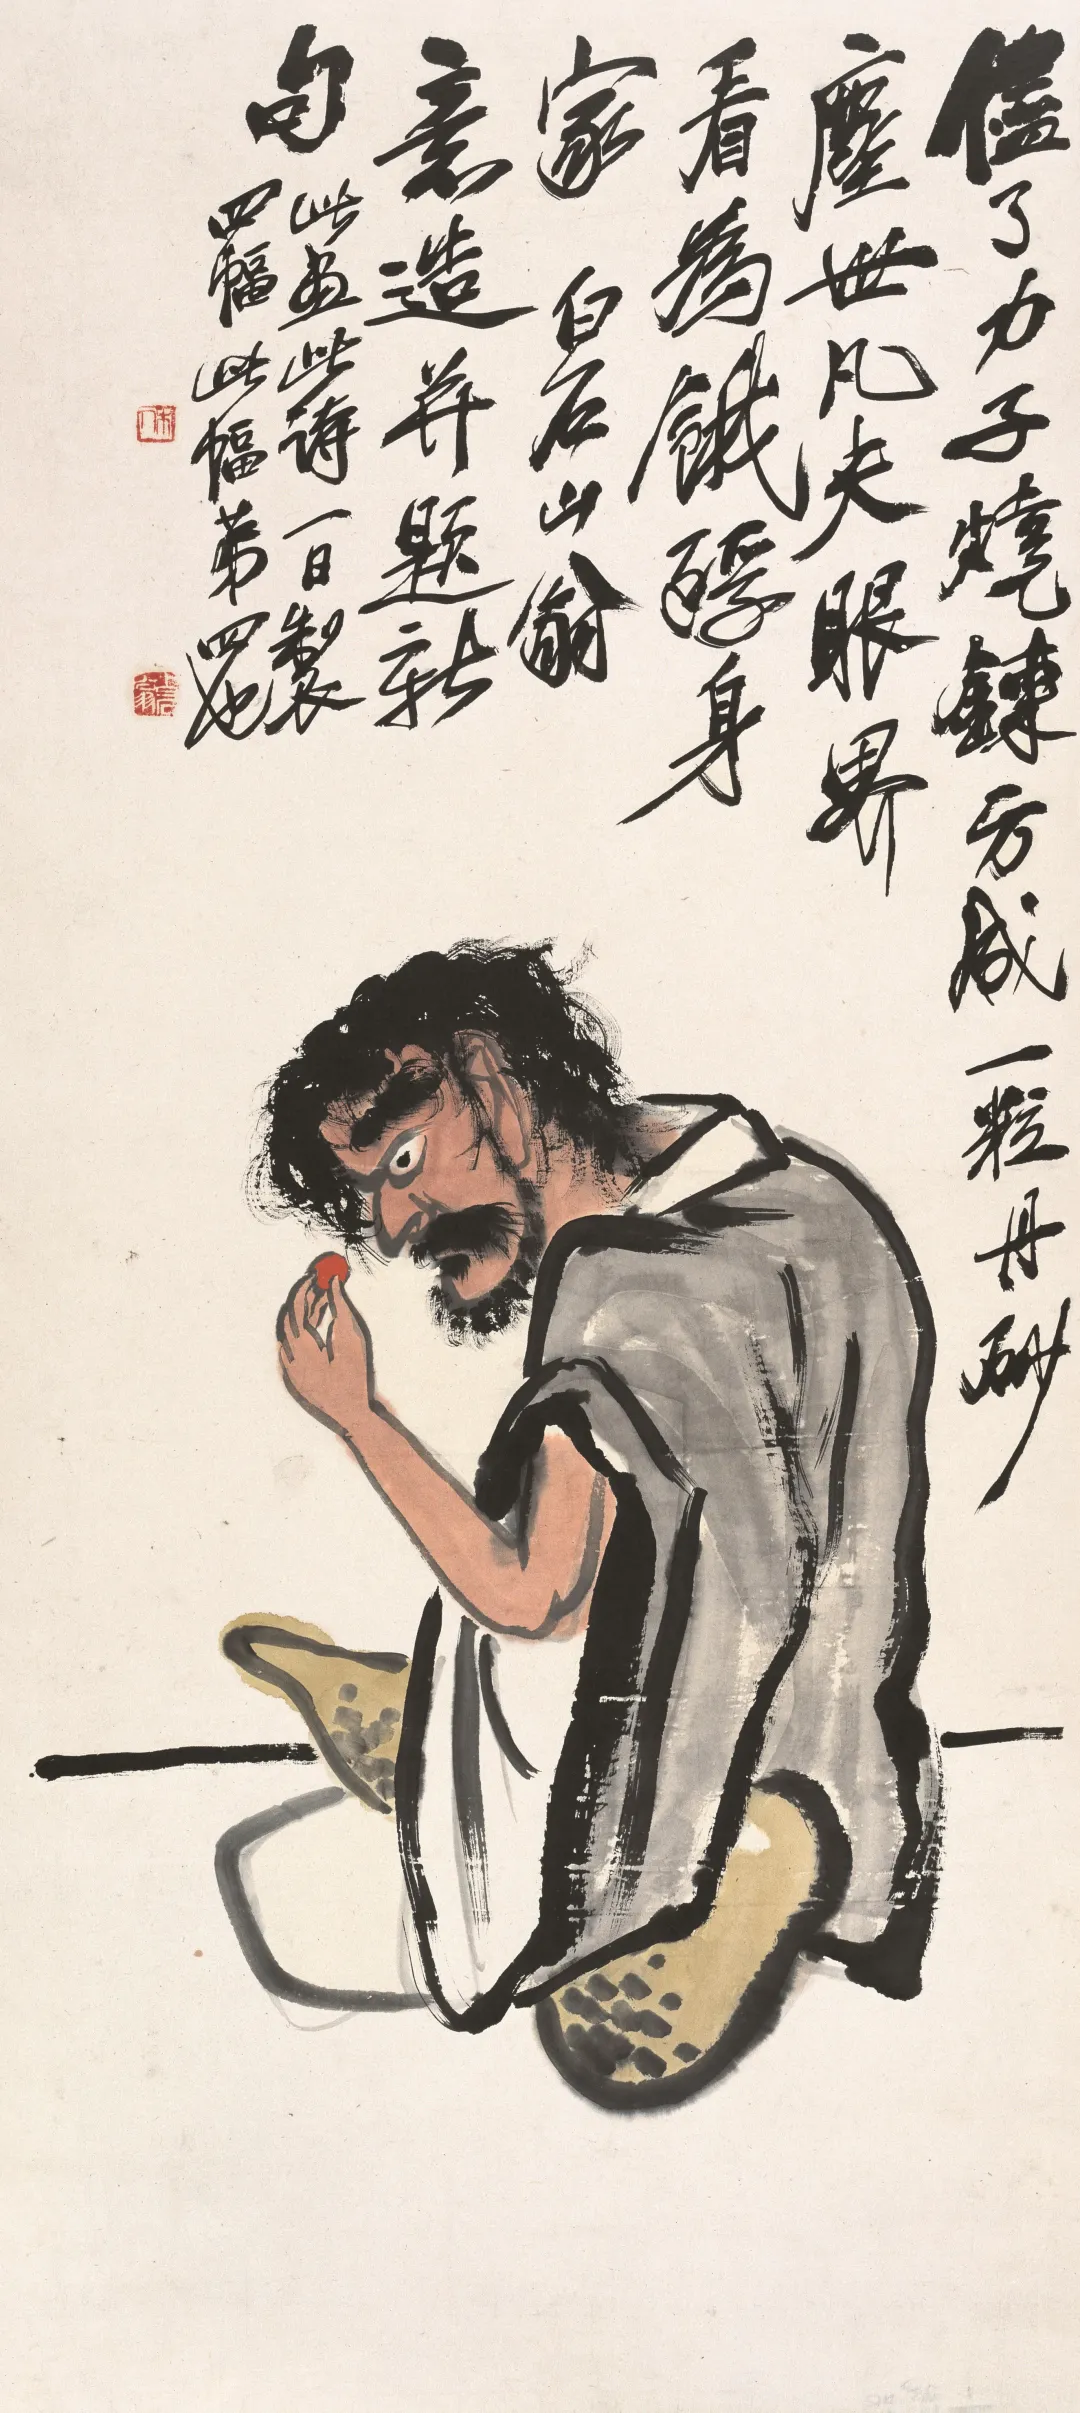 儘了力子燒鍊方成一粒丹砂
塵世凡夫眼界
看為餓殍身
家 白石山翁
意造并題新
句 此畫此詩一日製
四幅此幅弟四也
木人